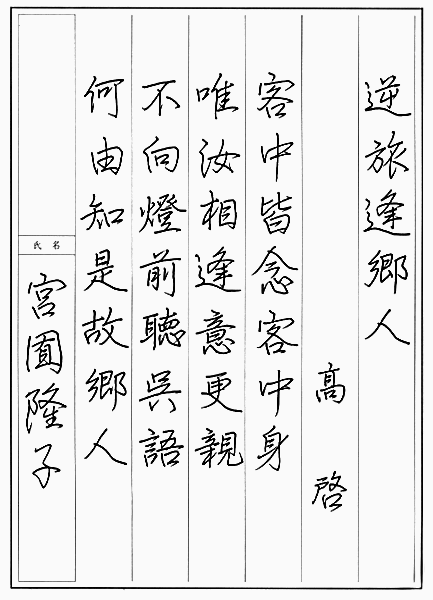 逆旅逢郷人
高啓
客中皆念客中身
唯汝相逢意更親
不向燈前聴呉語
何由知是故郷人
氏名
宮園隆子